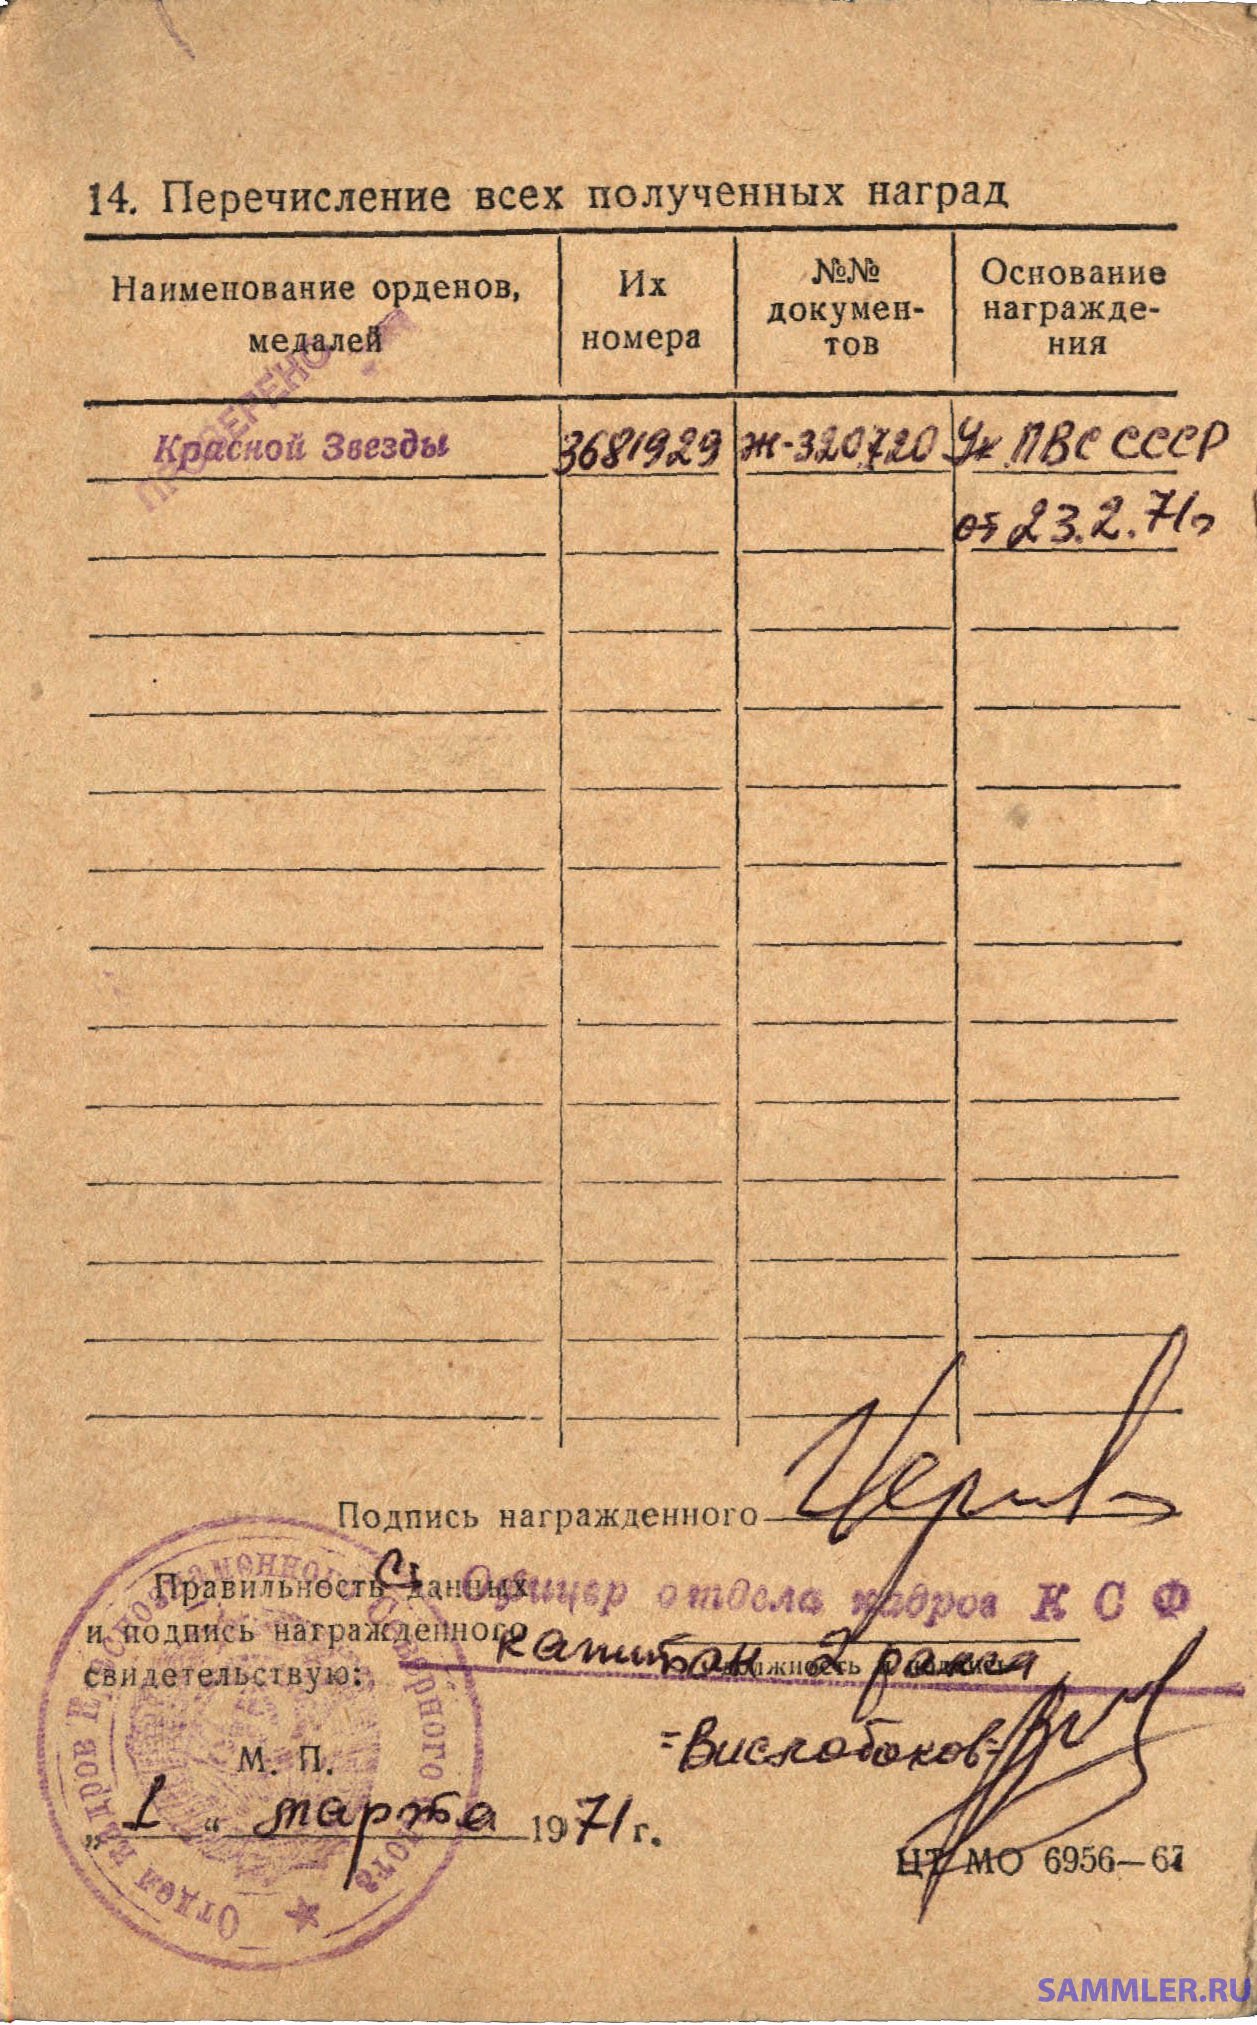 14. Перечисление всех полученных наград
Наименование орденов, медалей
Их номера
№№ докумен-
тов
Основание
награжде-
ния
ПРОВЕРЕНО
Красной Звезды 3681929 Ж-320720 Ук. ПВС СССР
от 23.2.71г
Подпись награжденного
Правильность данных Офицер отдела кадров КСФ
и подпись награжденного капитан 2 ранга
свидетельствую: должность и подпись
М. П. =Вислобоков=
„1“ марта 1971 г.
ЦТ МО 6956—67
Отдел кадров Краснознаменного Северного флота
SAMMLER.RU